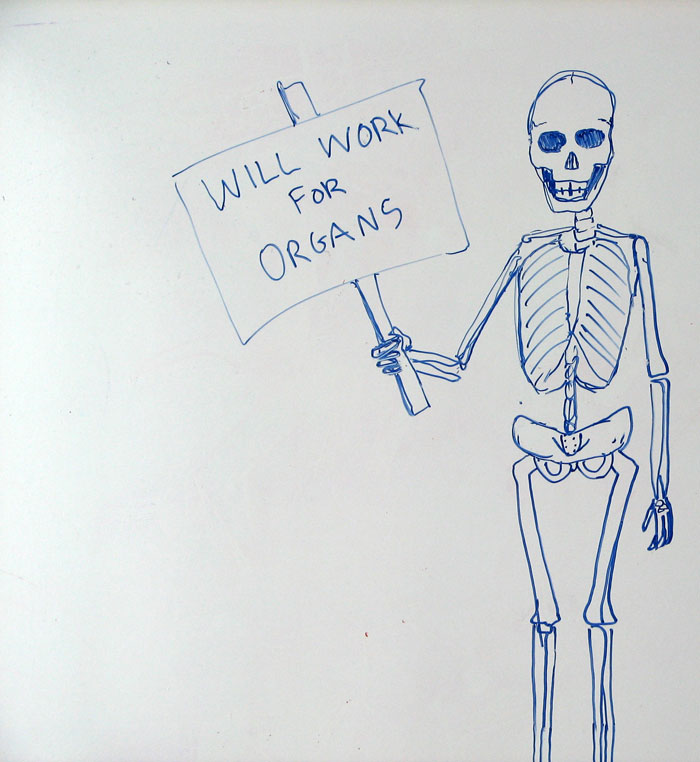 WILL WORK
FOR
ORGANS